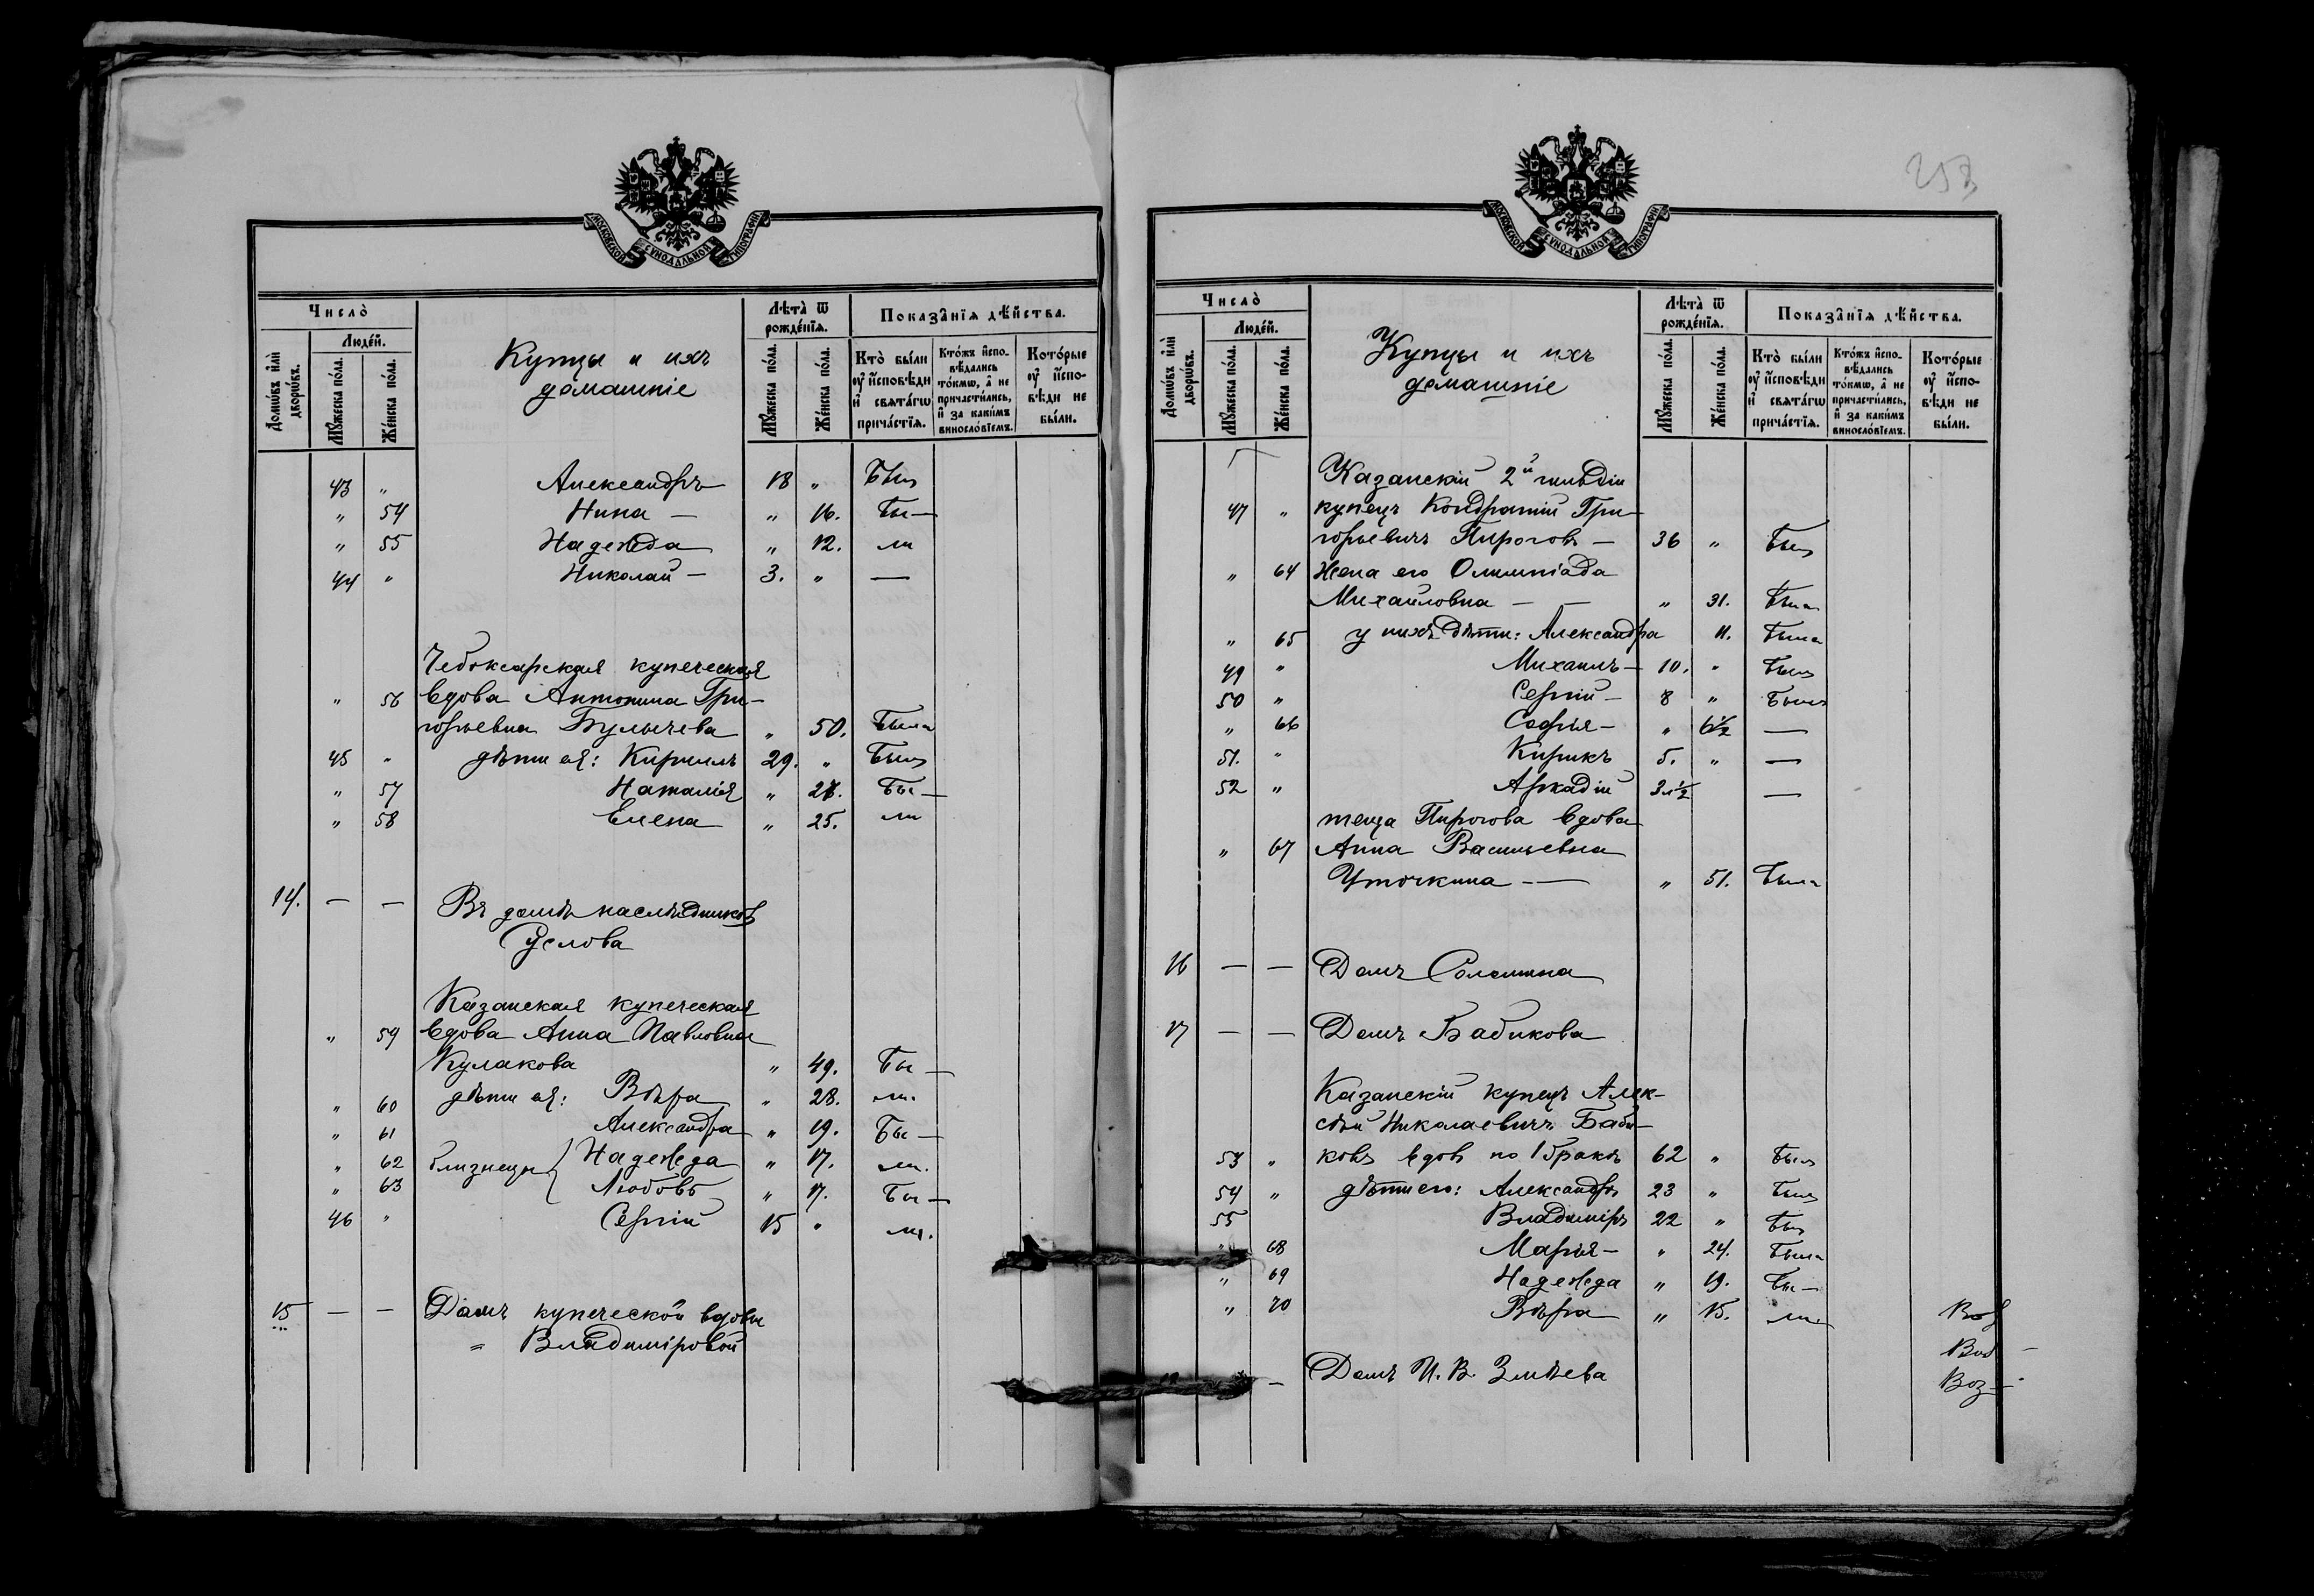 МОСКОВСКОЙ СѴНОДАЛЬНОЙ ТИПОГРАФІИ
Число̀
Домѡ́въ и҆лѝ дворѡ́въ.
Люде́й.
Мꙋ́жеска по́ла.
Же́нска по́ла.
Купцы и ихъ
домашніе
Лѣта̀ ѿ рожде́нїѧ.
Мꙋ́жеска по́ла.
Же́нска по́ла.
Показа̑нїѧ дѣ́йства.
Кто̀ бы́ли ᲂу҆ и҆сповѣ́ди и҆ свѧта́гѡ прича́стїѧ.
Кто́жъ и҆спо-вѣ́дались то́кмѡ, а҆ не причасти́лись, и҆ за каки́мъ виносло́вїемъ.
Кото́рые ᲂу҆ и҆спо-вѣ́ди не бы́ли.
43 " Александръ 18 " Былъ
" 54 Нина — " 16. Бы—
" 55 Надежда " 12. ли
44 " Николай — 3. " —
Чебоксарская купеческая
" 56 вдова Антонина Гри-
горьевна Булычева " 50. Была
45 " дѣти ея: Кириллъ 29. " Былъ
" 57 Наталія " 27. Бы—
" 58 Елена " 25. ли
14. — — Въ домѣ наслѣдниковъ
Суслова
Казанская купеческая
" 59 вдова Анна Павловна
Кулакова " 49. Бы—
" 60 дѣти ея: Вѣра " 28. ли.
" 61 Александра " 19. Бы—
" 62 близнецы { Надежда " 17. ли.
" 63 Любовь " 17. Бы—
46 " Сергій 15 " ли.
15 — — Домъ купеческой вдовы
" Владиміровой
253
МОСКОВСКОЙ СѴНОДАЛЬНОЙ ТИПОГРАФІИ
Число̀
Домѡ́въ и҆лѝ дворѡ́въ.
Люде́й.
Мꙋ́жеска по́ла.
Же́нска по́ла.
Купцы и ихъ
домашніе
Лѣта̀ ѿ рожде́нїѧ.
Мꙋ́жеска по́ла.
Же́нска по́ла.
Показа̑нїѧ дѣ́йства.
Кто̀ бы́ли ᲂу҆ и҆сповѣ́ди и҆ свѧта́гѡ прича́стїѧ.
Кто́жъ и҆спо-вѣ́дались то́кмѡ, а҆ не причасти́лись, и҆ за каки́мъ виносло́вїемъ.
Кото́рые ᲂу҆ и҆спо-вѣ́ди не бы́ли.
Казанскій 2й гильдіи
47 " купецъ Кондратій Гри-
горьевичъ Пироговъ — 36 " Былъ
" 64 Жена его Олимпіада
Михайловна — — " 31. Была
" 65 у нихъ дѣти: Александра 11. Была
49 " Михаилъ — 10. " Былъ
50 " Сергій — 8 " Былъ
" 66 Софія — " 6½ —
51. " Кирикъ 5. " —
52 " Аркадій 3 1/2 —
теща Пирогова вдова
" 67 Анна Васильевна
Уточкина — " 51. Была
16 — — Домъ
17 — — Домъ Бабикова
Казанскій купецъ Алек-
сѣй Николаевичъ Баби-
53 " ковъ вдов по 1 бракѣ 62 " Былъ
54 " дѣти его: Александръ 23 " Былъ
55 Владиміръ 22 " Былъ
" 68 Марія — " 24. Была
" 69 Надежда " 19. Бы—
" 70 Вѣра " 15. ли.
— Домъ И. В. Змѣева